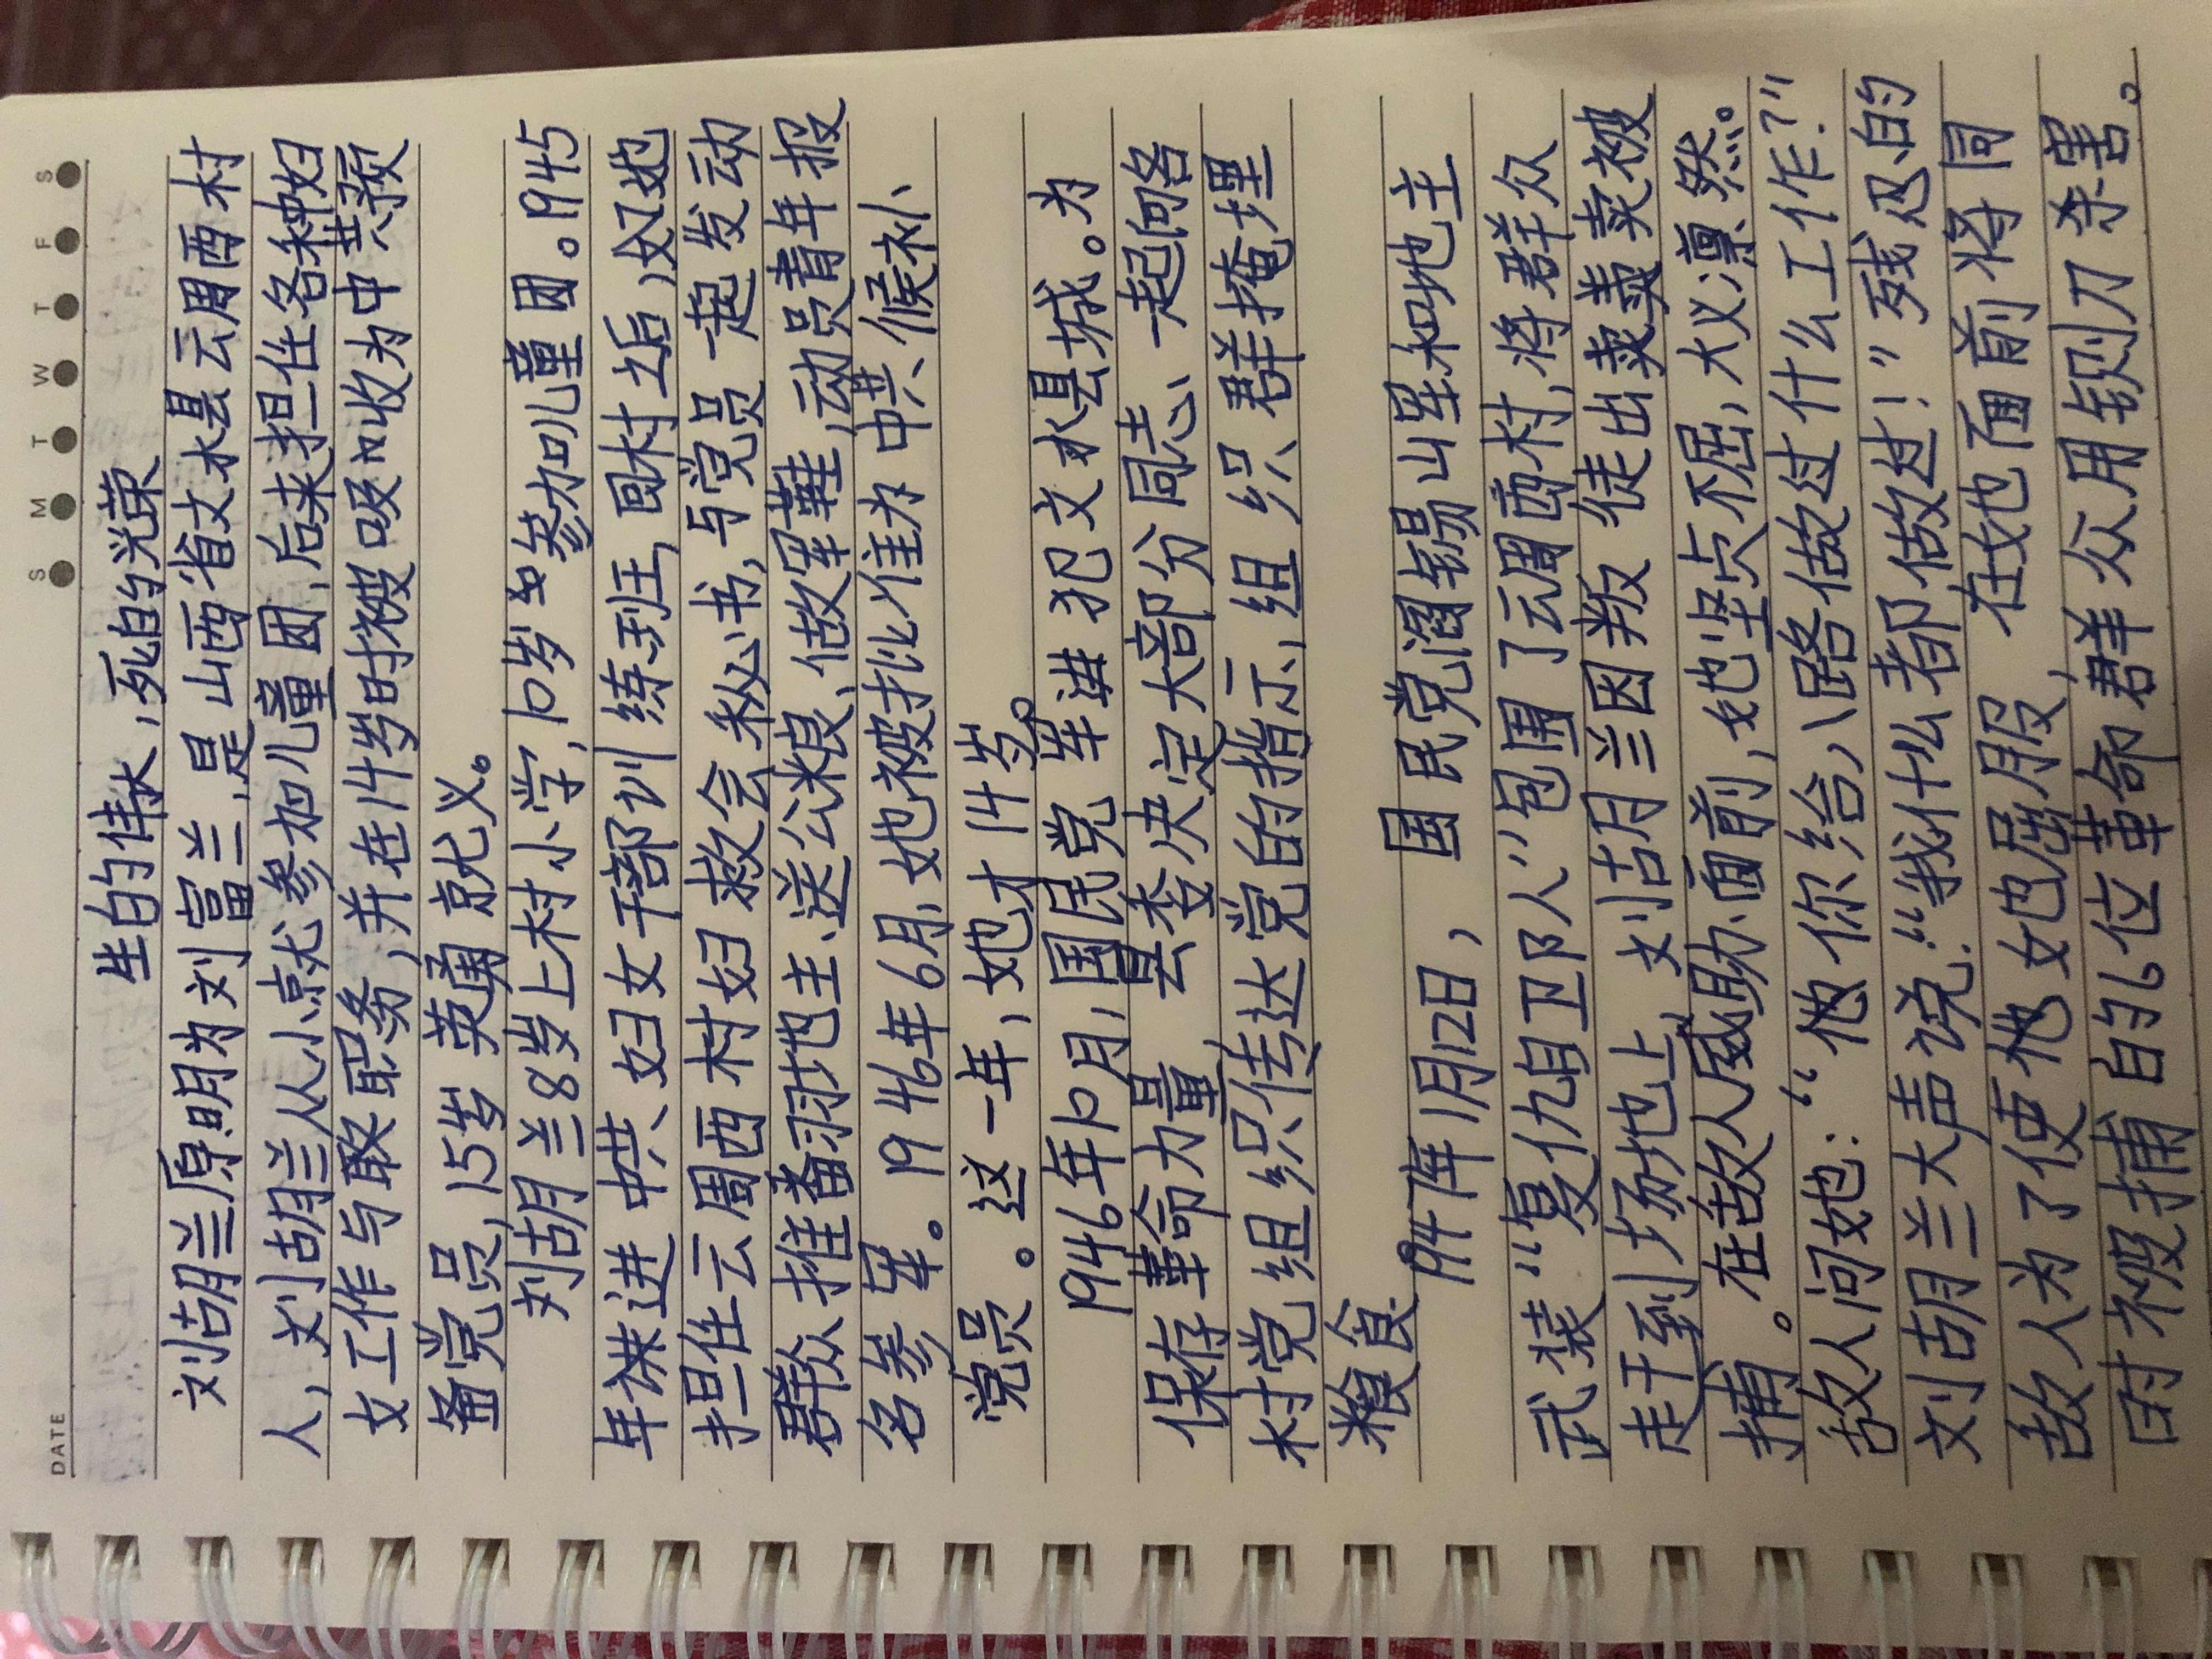 DATE S M T W T F S
生的伟大，死的光荣
刘胡兰原明为刘富兰，是山西省文水县云周西村
人，刘胡兰从小就参加儿童团，后来担任各种妇
女工作与职务，并在14岁时被吸收为中共预
备党员，15岁英勇就义。
刘胡兰8岁上村小学，10岁参加儿童团。1945
年进中共妇女干部训练班，回村之后，她
担任云周西村妇救会秘书，与党员一起发动
群众推番羽地主、送公粮、做军鞋，动员青年报
名参军。1946年6月，她被批准为中共候补
党员。这一年，她才14岁。
1946年12月，国民党军进犯文水县城。为
保存革命力量县委决定大部分同志、一起向各
村党组织传达党的指示，组织群掩埋
粮食
1947年1月12日，国民党阎锡山军和地主
武装“复仇自卫队”包围了云周西村，将群众
走干到场地上，刘胡兰因叛徒出卖被
捕。在敌人威胁面前，她坚贞不屈，大义凛然。
敌人问她：“你给八路做过什么工作？”
刘胡兰大声说：“我什么都做过！”残忍的
敌人为了使她屈服，在她面前将同
时被捕的6位革命群众用铡刀杀害。